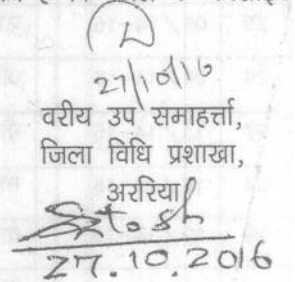 27/10/16
वरीय उप समाहर्त्ता,
जिला विधि प्रशाखा,
अररिया
27.10.2016